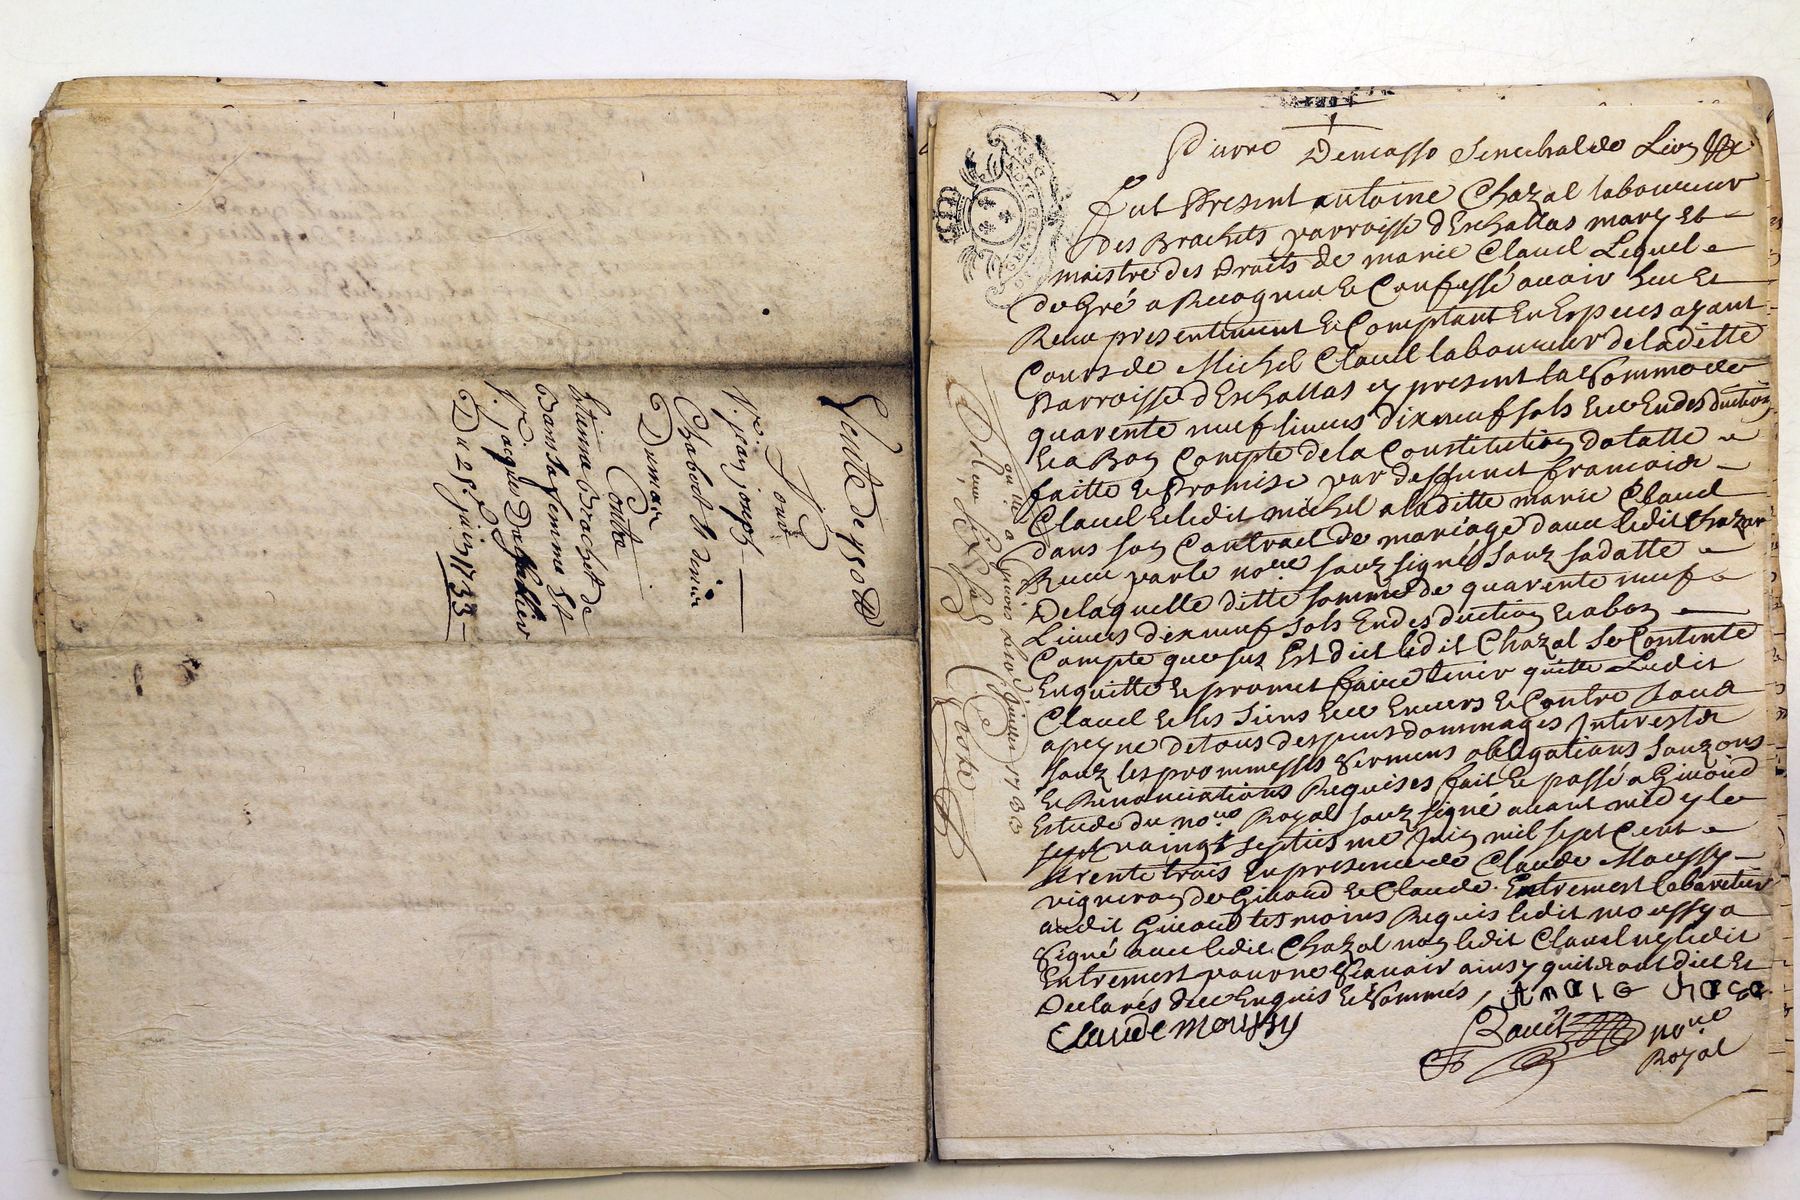 Vente de 150 ll
Pour
Sr. jean joseph
Chabert de Venin
Dumain
Contre
Etienne Brachet de
Bansa femme Et
Sr. jacque Dagallier
Du 25e juin 1733
Pierre Demasso Senechal de Lion &c
fut Present antoine Chazal laboureur
des Brachets parroisse d'Eschallas mary Et
maistre des droits de marie Claud Lequel
de Gré a Recognu & Confessé avoir heu Et
Receu presentement & Comptant En Especes ayant
Cours de Michel Claud laboureur de la ditte
Parroisse d'Eschallas cy present la Somme de
quarente neuf livres dix neuf sols Et ce En desduction
& a Bon Compte de la Constitution dotalle
faitte & Promise par deffunct francois
Claud & ledit michel a laditte marie Claud
dans son Contract de mariage avec ledit Chazal
Receu par le nore. souzsigné souz sa datte
De laquelle ditte somme de quarente neuf
Livres dix neuf sols En desduction & a bon
Compte que sus Est dict ledit Chazal se Contente
En quitte & promet faire tenir quitte Ledit
Claud & les siens Envers & Contre tous
a peyne de tous despens dommages Interests
souz les prommesses serments obligations souzmons
& Renonciations Requises fait & passé a Givord
Estude du nore. Royal souz signé avant midy le
vaingt septiesme Juin mil sept Cent
trente trois En presence de Claude Moussy
vigneron de Givord & Claude Entremont Cabaretier
audit Givord tesmoins Requis ledit moussy a
signé avec ledit Chazal non ledit Claud ny ledit
Entremont pour ne scavoir ainsy qu'ils ont dict Et
Declarés de ce Enquis & Sommés,
Claude moussy
nore
Royal